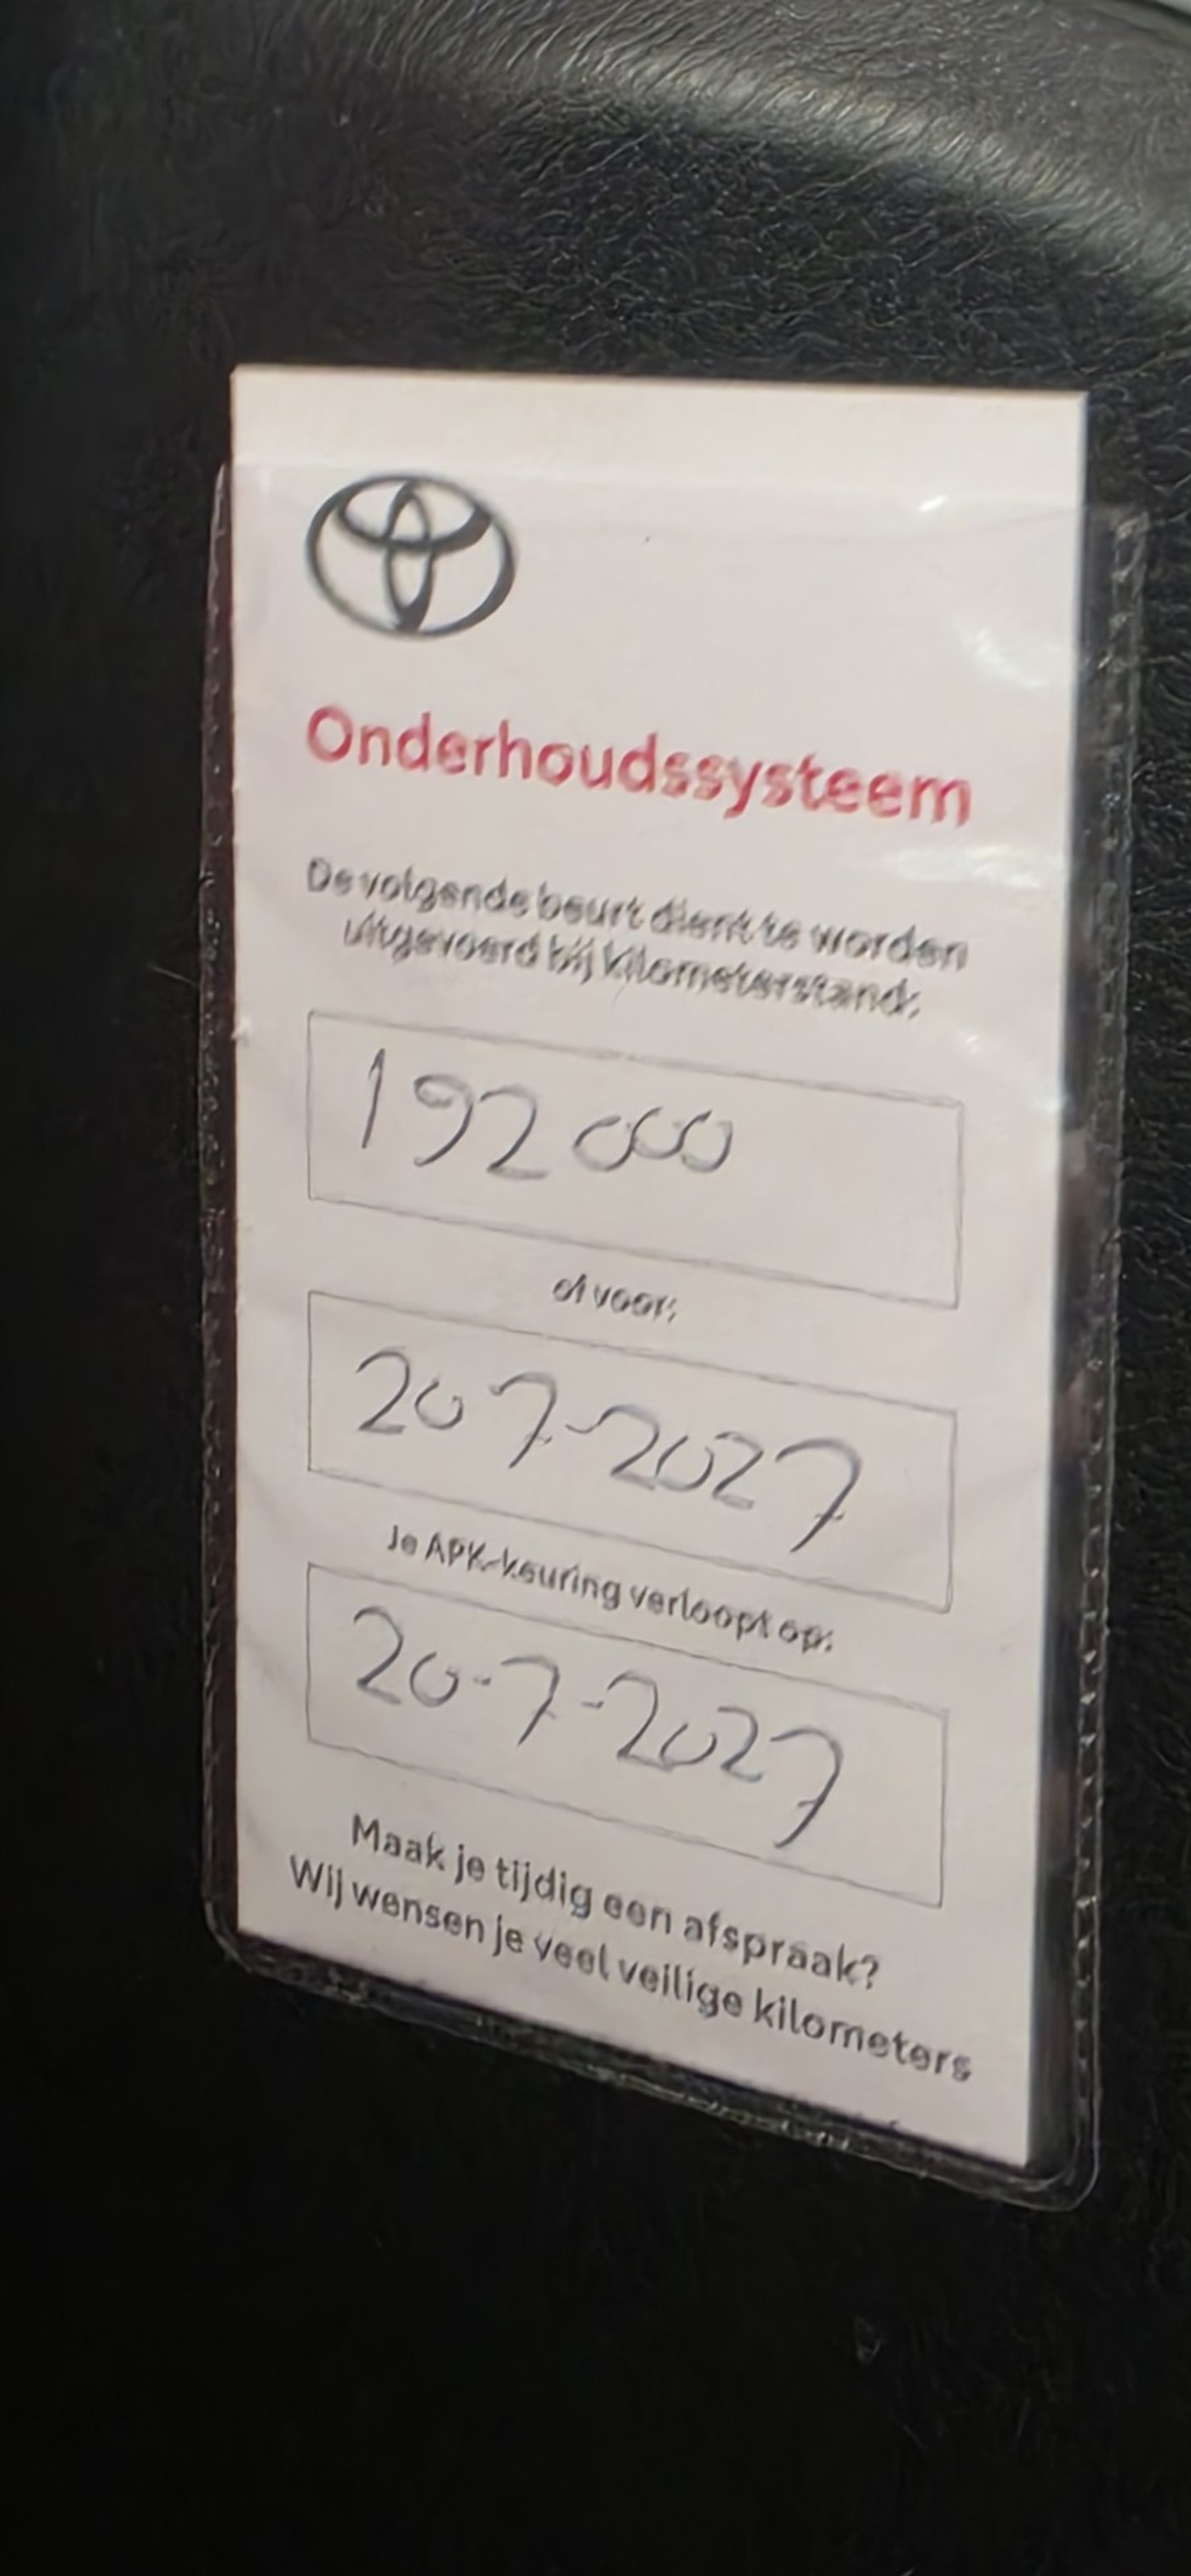 Onderhoudssysteem
De volgende beurt dient te worden
uitgevoerd bij kilometerstand:
192000
of voor:
20 7-2027
Je APK-keuring verloopt op:
20-7-2027
Maak je tijdig een afspraak?
Wij wensen je veel veilige kilometers